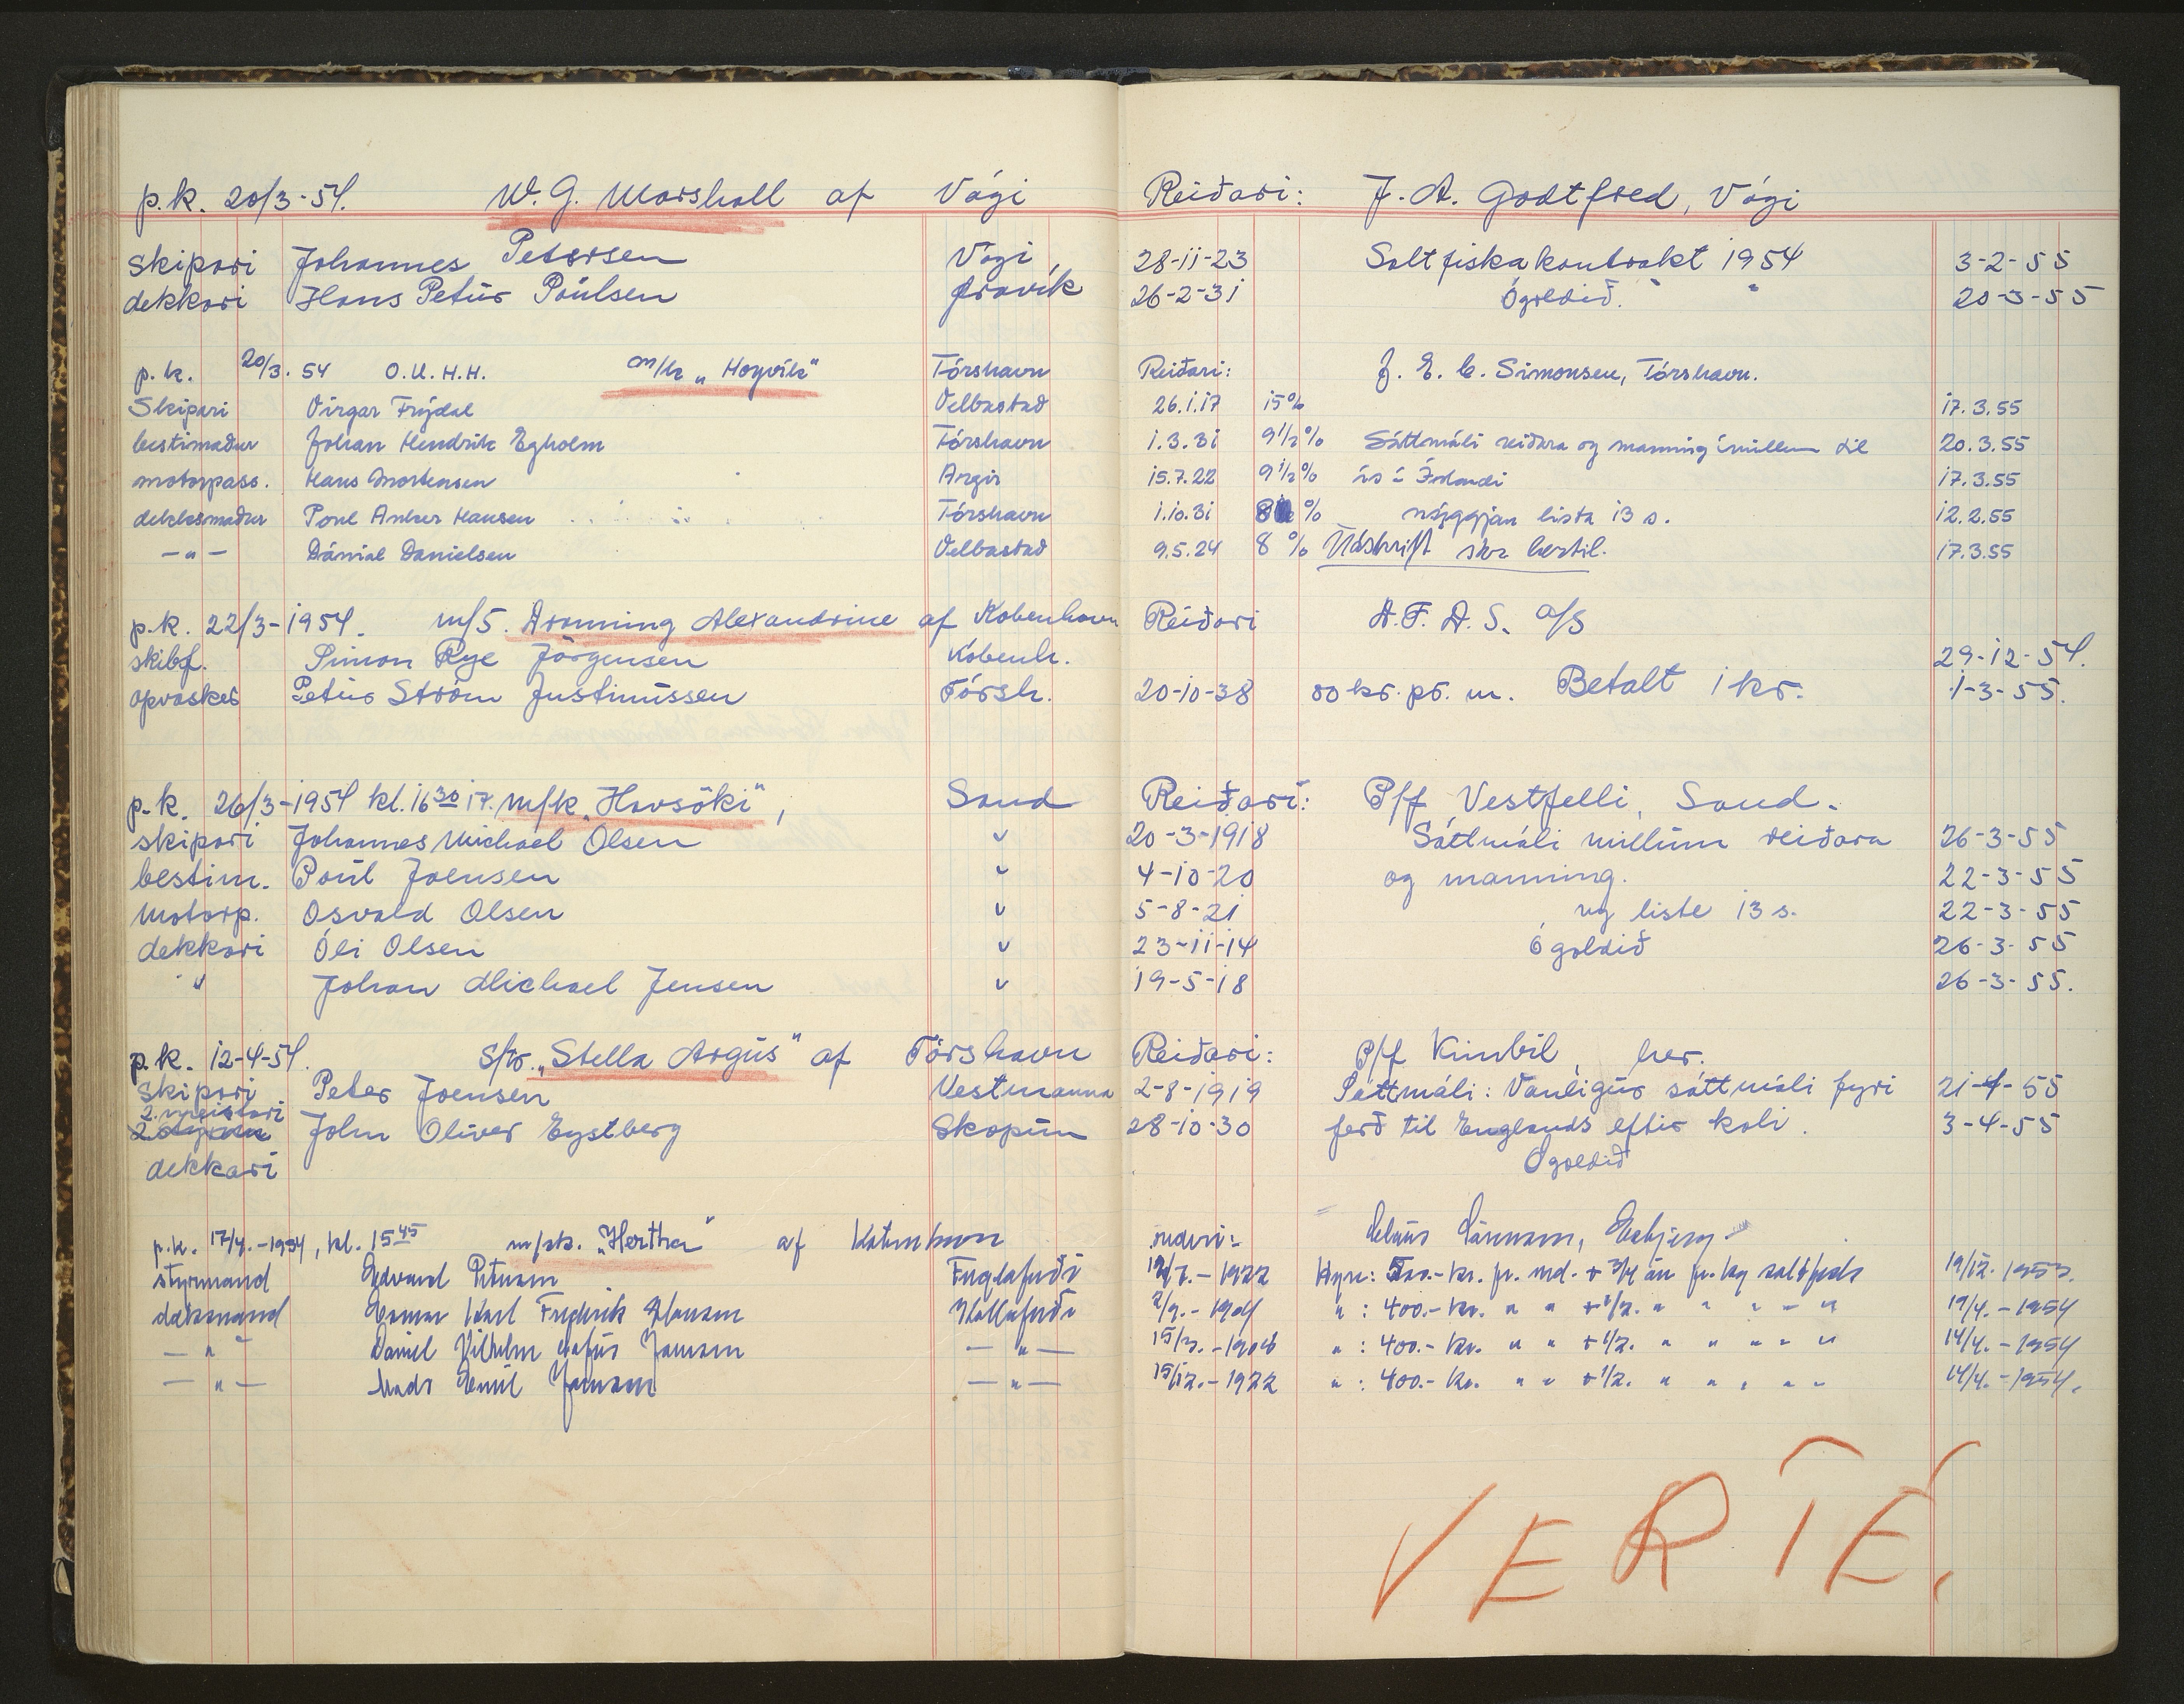 p.k. 20/3-54. W. G. Marshall af Vági Reiðari: J. A. Godtfred, Vági
skipari Johannes Petersen Vági, 28-11-23 Saltfiskakontrakt 1954 3-2-55
dekkari Hans Petur Poulsen 26-2-31 Ógoldið. " 20-3-55
p.k. 20/3. 54 O.U.H.H. m/k „Hoyvík“ Tórshavn Reiðari: J. E. C. Simonsen, Tórshavn.
Skipari Virgar Frýdal Velbastað 26.1.17 15% 17.3.55
bestimaður Johan Hendrik Egholm Tórshavn 1.3.31 9½% Sáttmáli reiðara og manning ímillum til 20.3.55
motorpass. Hans Mortensen Argir 15.7.22 9½% ís í Írlandi 17.3.55
dekksmaður Poul Anker Hansen Tórshavn 1.10.31 8 % nýggjan lista 13 s. 12.2.55
-"- Dánial Danielsen Velbastað 9.5.24 8 % Útskrift sær hertil. 17.3.55
p.k. 22/3-1954. m/s. Dronning Alexandrine af Kobenhavn Reiðari D.F.D.S. a/s
skibsf. Simon Rye Jörgensen Kobenh. 29-12-54.
opvasker Petur Ström Justinussen Tórsh. 20-10-38 80 kr. pr. m. Betalt 1 kr. 1-3-55.
p.k. 26/3-1954 kl. 16 30 17. m/k „Havsöki“, Sand Reiðari: P/f Vestfelli, Sand.
skipari Johannes Michael Olsen " 20-3-1918 Sáttmáli millum reiðara 26-3-55
bestim. Poul Joensen " 4-10-20 og manning. 22-3-55
motorp. Osvald Olsen " 5-8-21 ny liste 13 s. 22-3-55
dekkari Óli Olsen " 23-11-14 ógoldið 26-3-55
" Johan Michael Jensen " 19-5-18 26-3-55.
p.k. 12-4-54. s/tr. „Stella Argus“ af Tórshavn Reiðari: P/f Kimbil, her.
Skipari Peter Joensen Vestmanna 2-8-1919 Sáttmáli: Vanligur sáttmáli fyri 21-4-55
2. meistari John Oliver Eystberg Skopun 28-10-30 ferð til Englands eftir koli. 3-4-55
dekkari Ógoldið
p.k. 17/4.-1954, kl. 15 45 m/sk. „Hertha“ af reideri: Claus Sörensen, Esbjerg
styrmand Edvard Petersen Fuglafirði 19/7.-1922 Hyre: 500.- kr. pr. md. + 3/4 øre pr. kg saltfisk 19/12. 1953.
dæksmand Einar Karl Frederik Hansen Kollafirði 2/9.-1904 " : 400.- kr. " " + 1/2. " " " " 19/4.-1954
-"- Daniel Vilhelm Jansen -"- 15/3.-1906 " : 400.- kr. " " + 1/2. " " " " 14/4.-1954
-"- Mads Emil Jansen -"- 15/12.-1922 " : 400.- kr. " " + 1/2. " " " " 14/4.-1954.
VERTÉ.